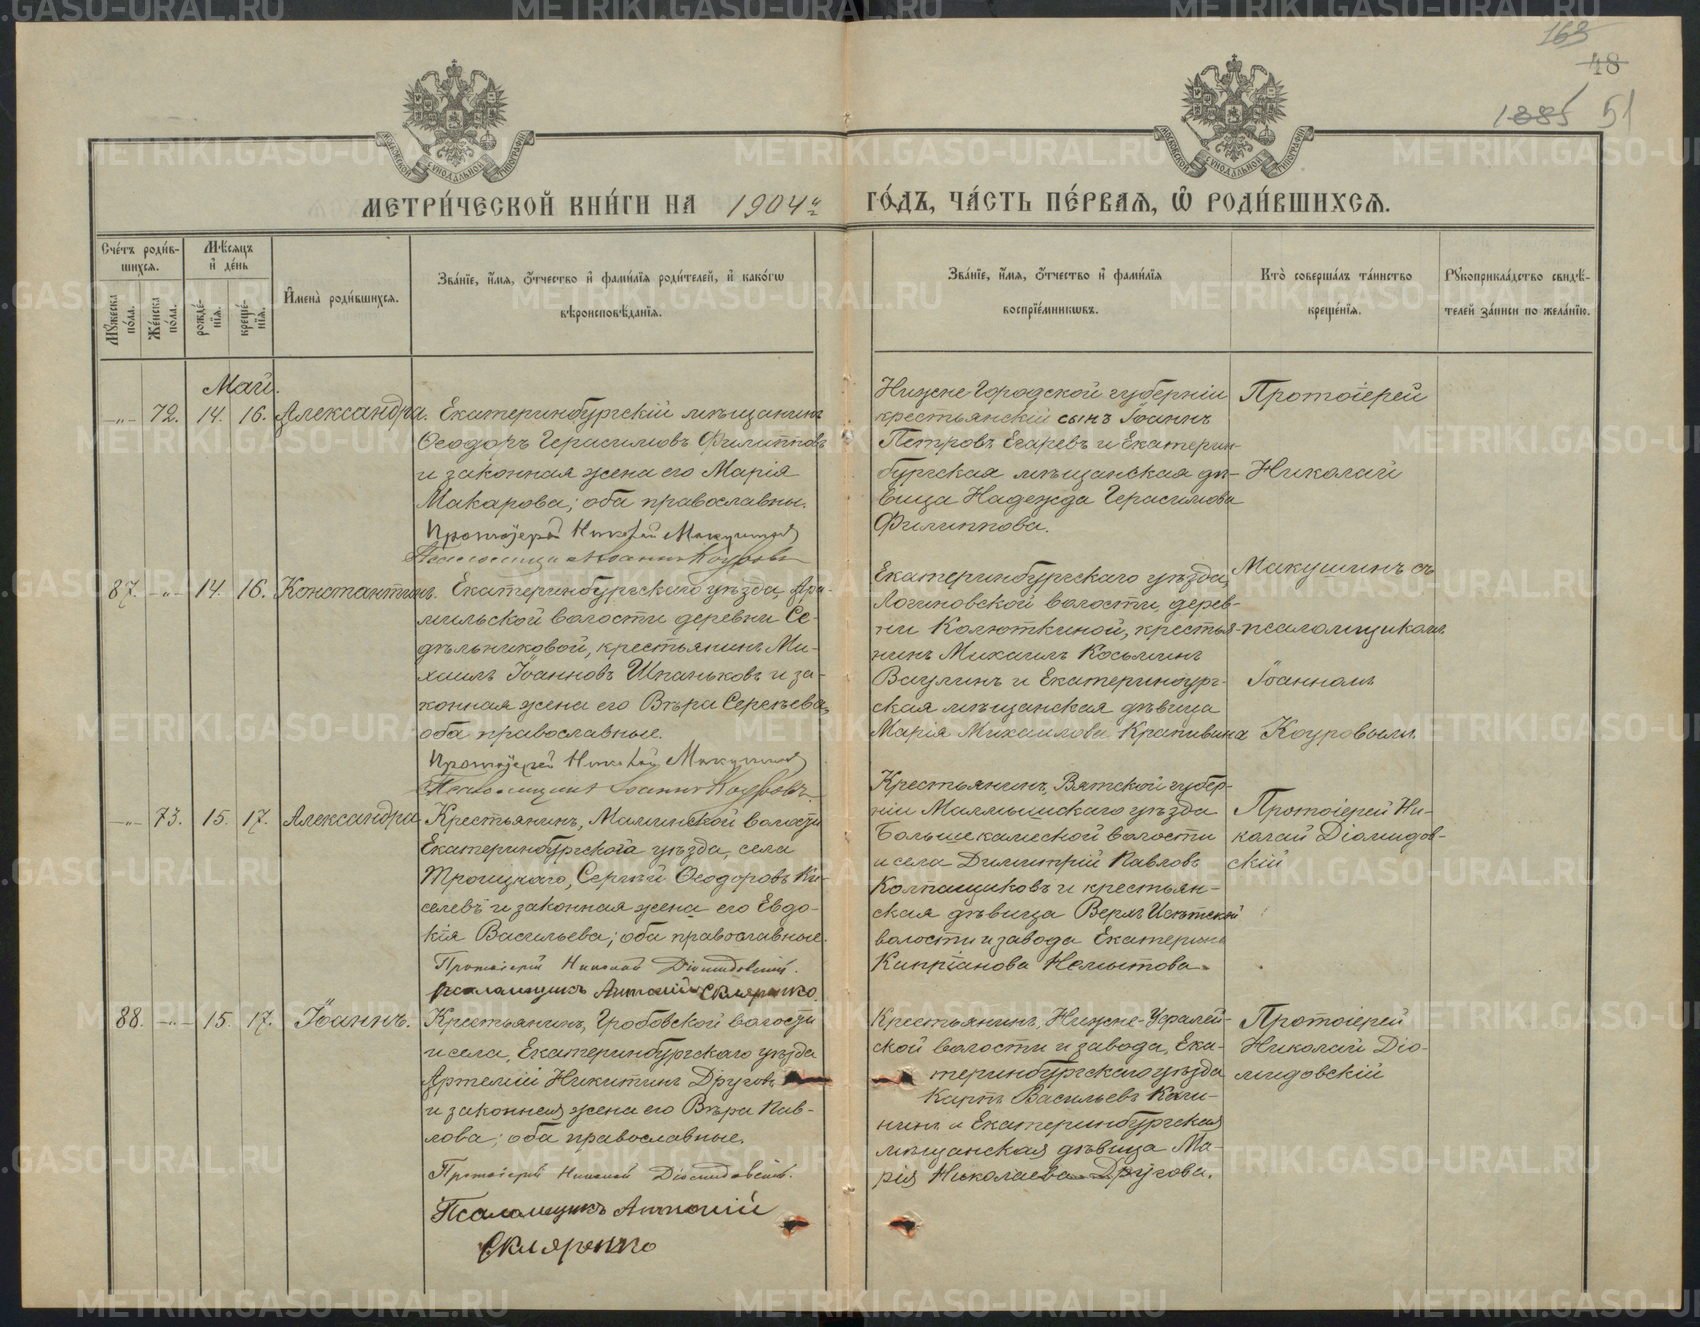 163
48
1885 51
МЕТРИ́ЧЕСКОЙ КНИ́ГИ НА 1904й ГО́ДЪ, ЧА́СТЬ ПЕ́РВАЯ, Ѡ РОДИ́ВШИХСЯ.
Сче́тъ роди́в-
шихся.
Му́жеска по́ла.
Же́нска по́ла.
Мѣ́сяцъ
и҆ де́нь
рожде́-
нїя.
креще́-
нїя.
И҆мена̀ роди́вшихся.
Зва́нїе, и҆́мя, ѻ҆́тчество и҆ фами́лїя роди́телей, и҆ како́гѡ
вѣроисповѣ́данїя.
Зва́нїе, и҆́мя, ѻ҆́тчество и҆ фами́лїя
воспрїе́мникѡвъ.
Кто̀ соверша́лъ та́инство
креще́нїя.
Рꙋкоприкла́дство свидѣ́-
телей за́писи по жела́нїю.
Май.
-„- 72. 14. 16. Александра.
Екатеринбургскій мѣщанинъ
Ѳеодоръ Герасимовъ Филипповъ
и законная жена его Марія
Макарова; оба православны.
Протоіерей Николай Макушинъ
Псаломщикъ Іоаннъ Коуровъ
Нижне Городской губерніи
крестьянскій сынъ Іоаннъ
Петровъ Егаревъ и Екатерин-
бургская мѣщанская дѣ-
вица Надежда Герасимова
Филиппова.
Протоіерей
Николай
Макушинъ съ
псаломщикомъ
Іоанномъ
Коуровымъ
87. -„- 14. 16. Константинъ.
Екатеринбургскаго уѣзда, Ара-
мильской волости деревни Се-
дѣльниковой, крестьянинъ Ми-
хаилъ Іоанновъ Шпаньковъ и за-
конная жена его Вѣра Сергѣева,
оба православные.
Протоіерей Николай Макушинъ
Псаломщикъ Іоаннъ Коуровъ
Екатеринбургскаго уѣзда,
Логиновской волости, дерев-
ни Колюткиной, крестья-
нинъ Михаилъ Косьминъ
Ваулинъ и Екатеринбург-
ская мѣщанская дѣвица
Марія Михаилова Крапивина
-„- 73. 15. 17. Александра
Крестьянинъ, Маминской волости
Екатеринбургскаго уѣзда, села
Троицкаго, Сергѣй Ѳеодоровъ Ки-
селевъ и законная жена его Евдо-
кія Васильева; оба православные.
Протоіерей Николай Діомидовскій.
Псаломщикъ Антоній Скляренко.
Крестьянинъ, Вятской губер-
ніи Малмышскаго уѣзда
волости
и села Димитрій Павловъ
Колпащиковъ и крестьян-
ская дѣвица Верхъ Исетской
волости и завода Екатерина
Кипріанова Немытова.
Протоіерей Ни-
колай Діомидов-
скій
88. -„- 15. 17. Іоаннъ.
Крестьянинъ, Гробовской волости
и села, Екатеринбургскаго уѣзда
Артемій Никитинъ Друговъ
и законная жена его Вѣра Пав-
лова; оба православные.
Протоіерей Николай Діомидовскій.
Псаломщикъ Антоній
Скляренко
Крестьянинъ, Нижне-Уфалей-
ской волости и завода, Ека-
теринбургскаго уѣзда
Карпъ Васильевъ
и Екатеринбургская
мѣщанская дѣвица Ма-
рія Николаева Другова.
Протоіерей
Николай Діо-
мидовскій
METRIKI.GASO-URAL.RU